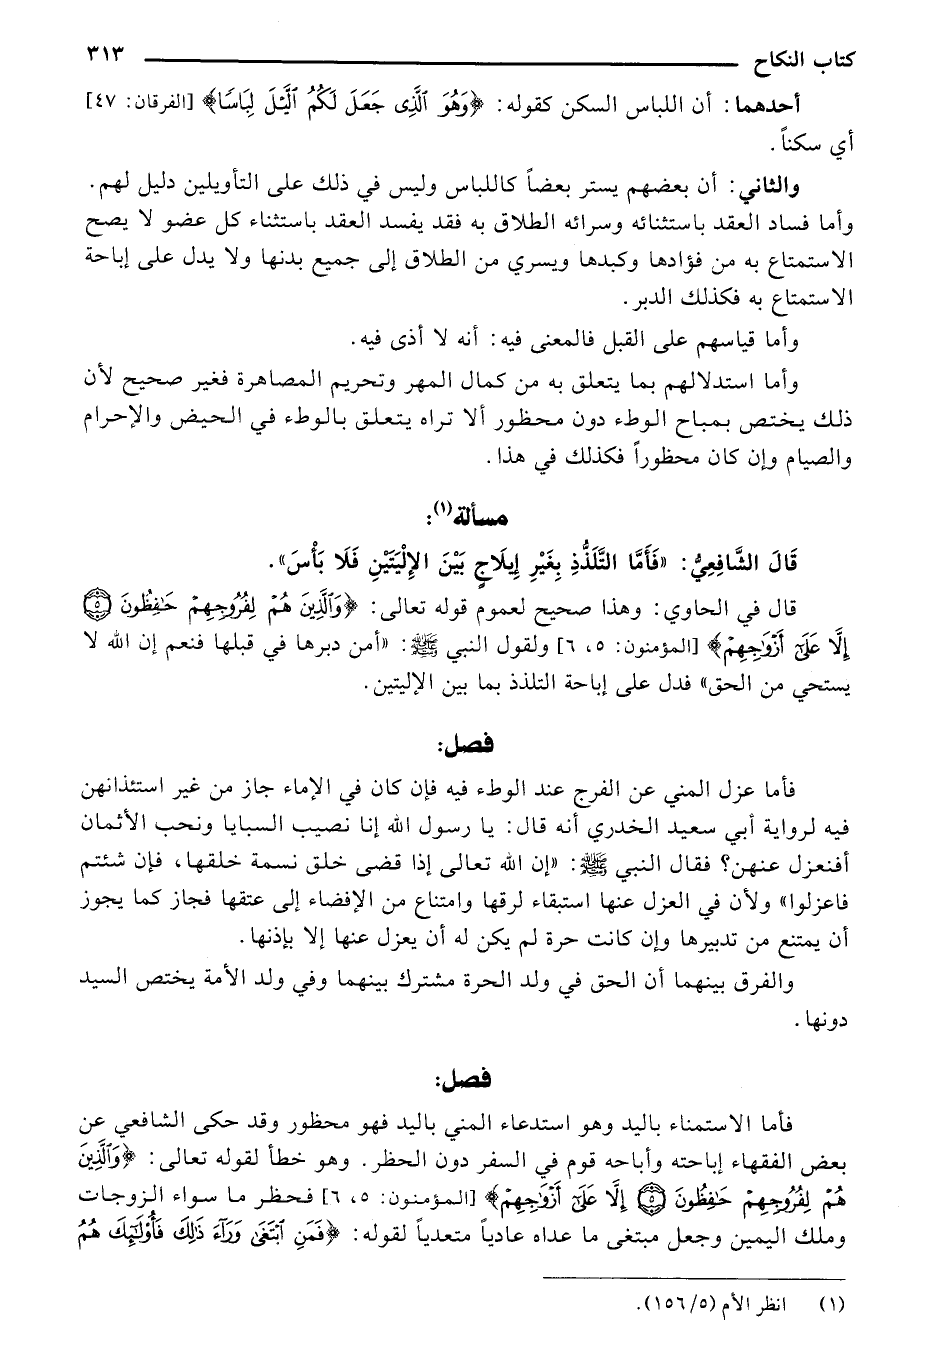 كتاب النكاح ٣١٣
أحدهما: أن اللباس السكن كقوله: ﴿وَهُوَ ٱلَّذِى جَعَلَ لَكُمُ ٱلَّيْلَ لِبَاسًا﴾ [الفرقان: ٤٧]
أي سكناً.
والثاني: أن بعضهم يستر بعضاً كاللباس وليس في ذلك على التأويلين دليل لهم.
وأما فساد العقد باستثنائه وسرائه الطلاق به فقد يفسد العقد باستثناء كل عضو لا يصح
الاستمتاع به من فؤادها وكبدها ويسري من الطلاق إلى جميع بدنها ولا يدل على إباحة
الاستمتاع به فكذلك الدبر.
وأما قياسهم على القبل فالمعنى فيه: أنه لا أذى فيه.
وأما استدلالهم بما يتعلق به من كمال المهر وتحريم المصاهرة فغير صحيح لأن
ذلك يختص بمباح الوطء دون محظور ألا تراه يتعلق بالوطء في الحيض والإحرام
والصيام وإن كان محظوراً فكذلك في هذا.
مسألة(١):
قَالَ الشَّافِعِيُّ: «فَأَمَّا التَّلَذُّذِ بِغَيْرِ إِيلَاجٍ بَيْنَ الإِلْيَتَيْنِ فَلَا بَأْسَ».
قال في الحاوي: وهذا صحيح لعموم قوله تعالى: ﴿وَٱلَّذِينَ هُمْ لِفُرُوجِهِمْ حَٰفِظُونَ ۝٥
إِلَّا عَلَىٰٓ أَزْوَٰجِهِمْ﴾ [المؤمنون: ٥، ٦] ولقول النبي ﷺ: «أمن دبرها في قبلها فنعم إن الله لا
يستحي من الحق» فدل على إباحة التلذذ بما بين الإليتين.
فصل:
فأما عزل المني عن الفرج عند الوطء فيه فإن كان في الإماء جاز من غير استئذانهن
فيه لرواية أبي سعيد الخدري أنه قال: يا رسول الله إنا نصيب السبايا ونحب الأثمان
أفنعزل عنهن؟ فقال النبي ﷺ: «إن الله تعالى إذا قضى خلق نسمة خلقها، فإن شئتم
فاعزلوا» ولأن في العزل عنها استبقاء لرقها وامتناع من الإفضاء إلى عتقها فجاز كما يجوز
أن يمتنع من تدبيرها وإن كانت حرة لم يكن له أن يعزل عنها إلا بإذنها.
والفرق بينهما أن الحق في ولد الحرة مشترك بينهما وفي ولد الأمة يختص السيد
دونها.
فصل:
فأما الاستمناء باليد وهو استدعاء المني باليد فهو محظور وقد حكى الشافعي عن
بعض الفقهاء إباحته وأباحه قوم في السفر دون الحظر. وهو خطأ لقوله تعالى: ﴿وَٱلَّذِينَ
هُمْ لِفُرُوجِهِمْ حَٰفِظُونَ ۝٥ إِلَّا عَلَىٰٓ أَزْوَٰجِهِمْ﴾ [المؤمنون: ٥، ٦] فحظر ما سواء الزوجات
وملك اليمين وجعل مبتغى ما عداه عادياً متعدياً لقوله: ﴿فَمَنِ ٱبْتَغَىٰ وَرَآءَ ذَٰلِكَ فَأُو۟لَٰٓئِكَ هُمُ
(١) انظر الأم (١٥٦/٥).